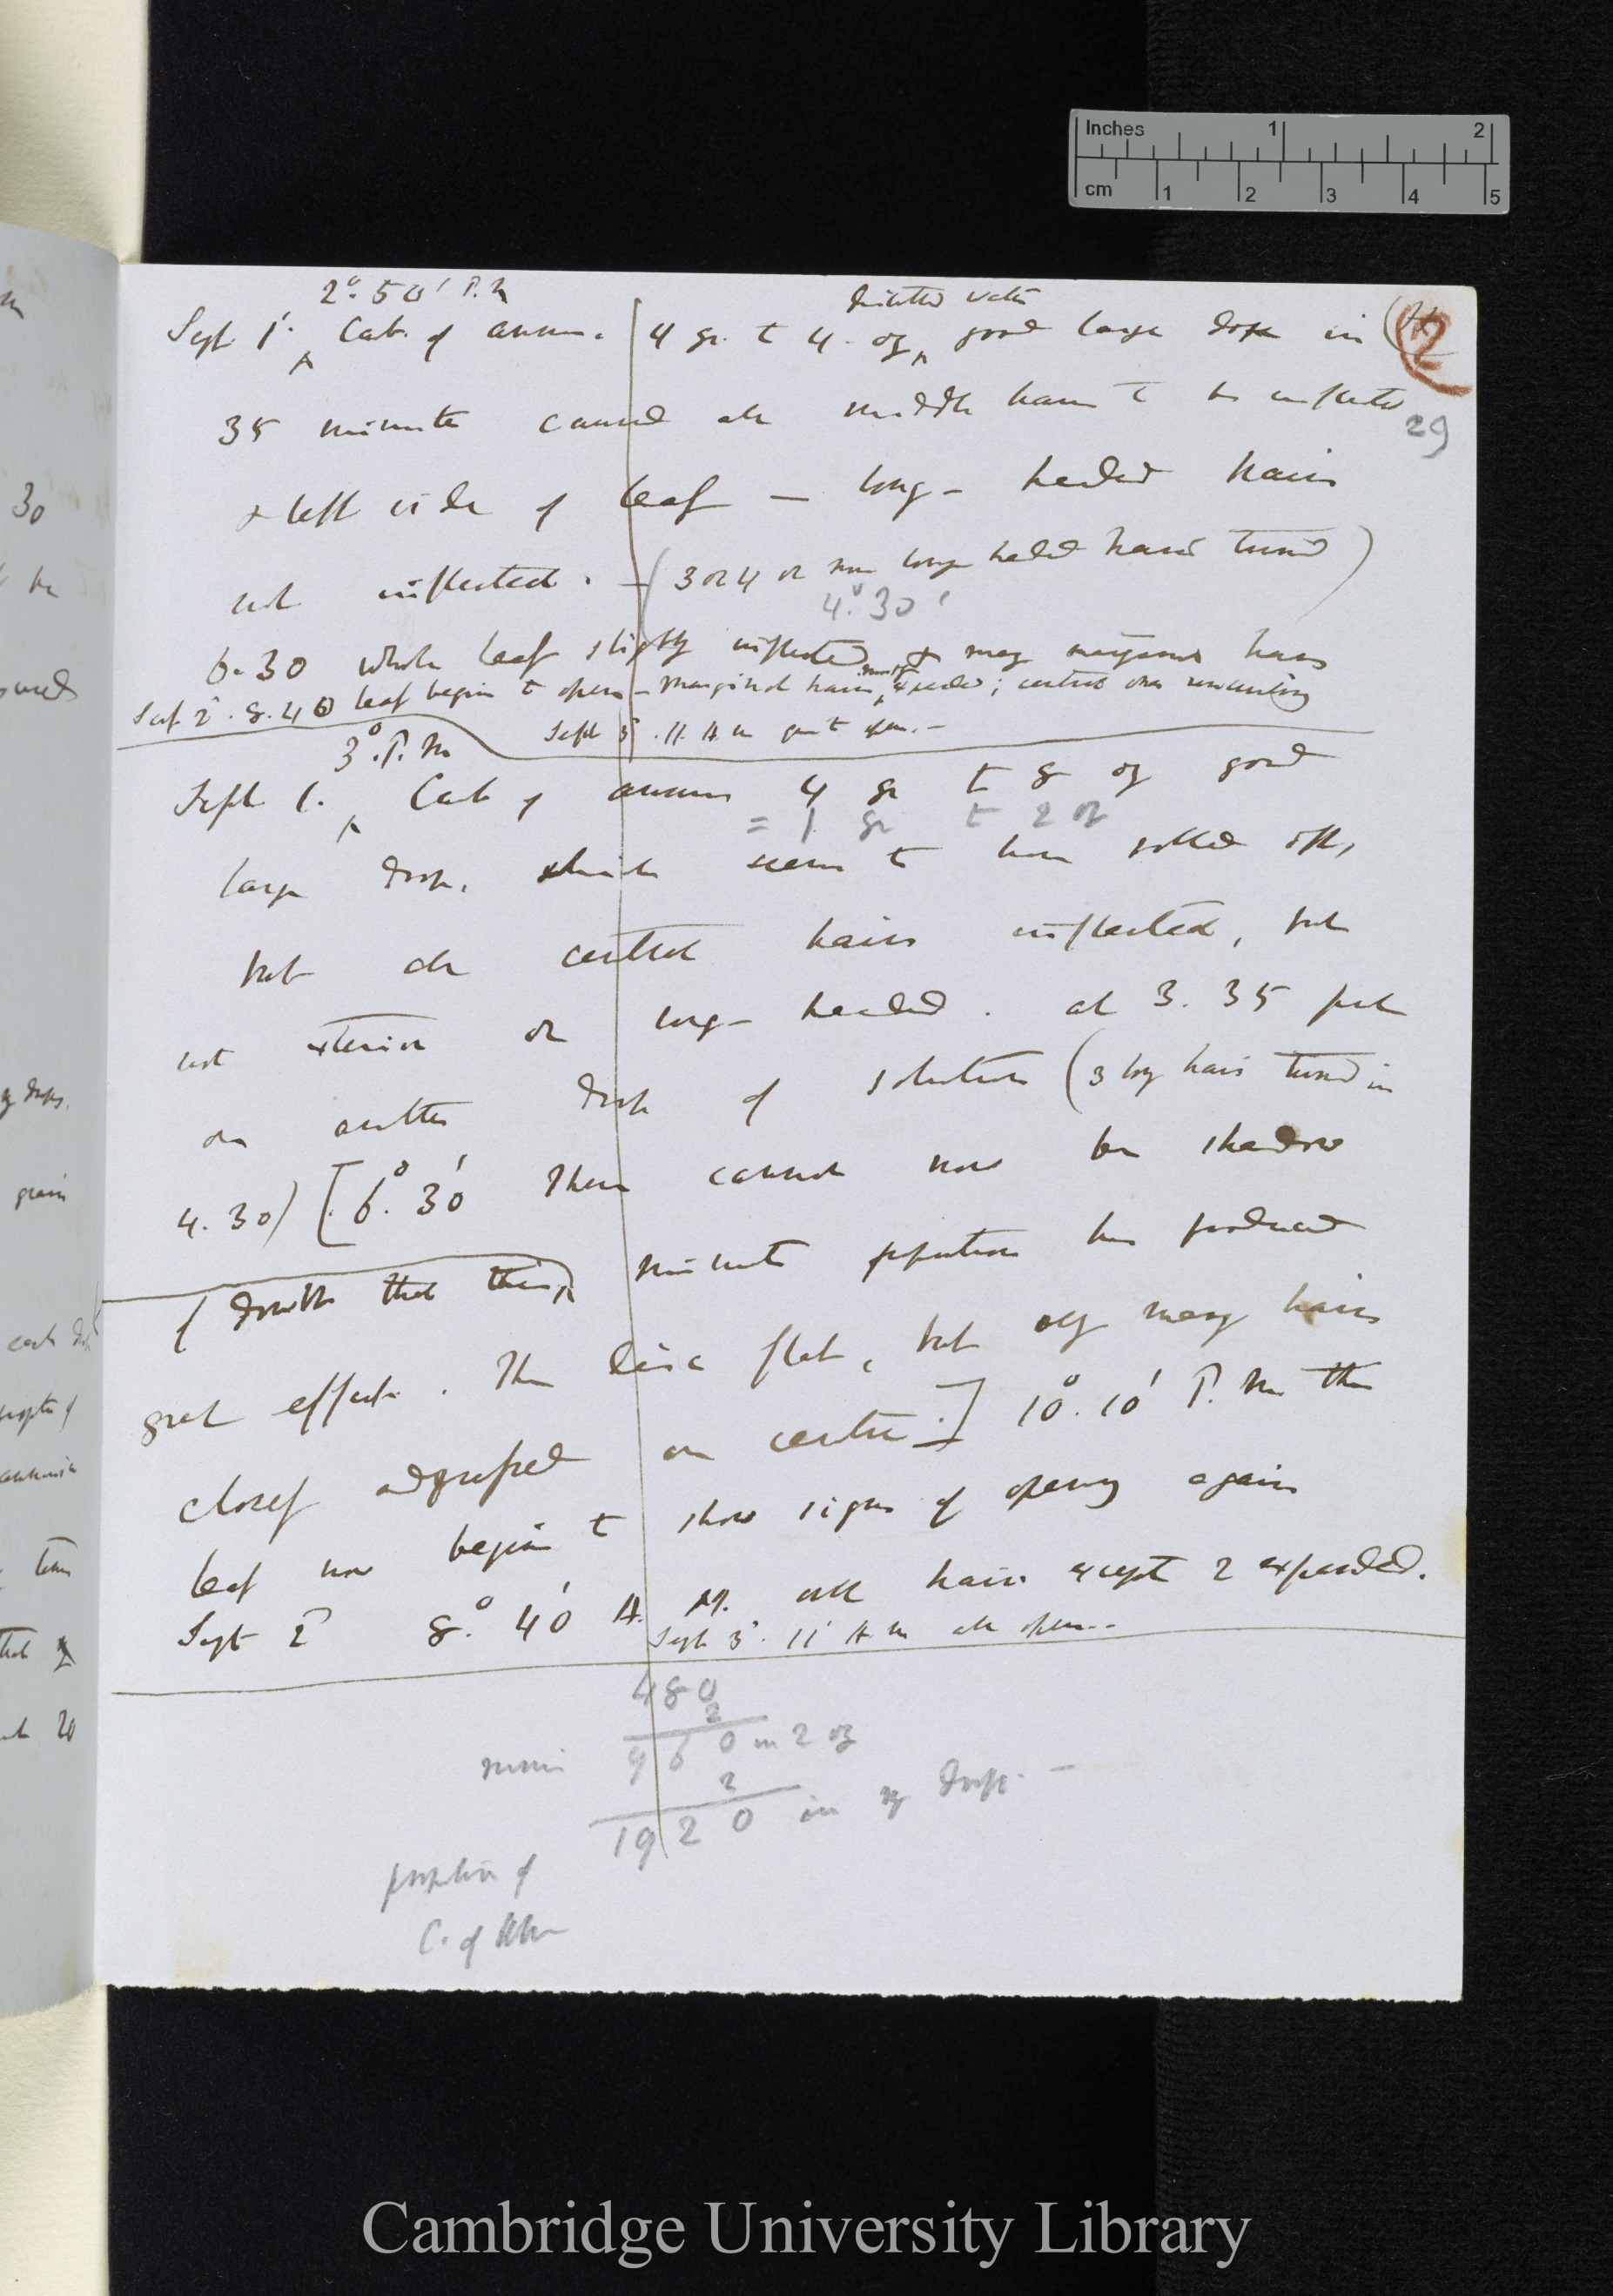 Inches 1 2
cm 1 2 3 4 5
2°. 50' P.M
distilled water
Sept 1'. Carb. of ammon. 4 gr. to 4. oz good large drop in
(2
29
35 minutes caused all middle hairs to be inflected
& left side of leaf — long-headed hairs
not inflected. — (3 or 4 or more long headed hairs turned)
4°. 30'
6.30 whole leaf slightly inflected & many marginal hairs
Sept 2'. 8.40 leaf begins to open — marginal hairs mostly expanded; central ones remaining
Sept 3' .11 A m quite open. —
3°. P. M
Sept 1. Carb of ammon 4 gr to 8 oz good
= 1 gr to 2 oz
large drop, which seems to have rolled off,
but all central hairs inflected, but
not exterior or long-headed. at 3. 35 put
on another drop of solution (3 long hairs turned in
4. 30) [6° 30' There cannot now be shadow
of doubt that this minute proportion has produced
great effect. The disc flat, but only many hairs
closely adpressed on centre.] 10°. 10' P. M the
leaf now begins to show signs of opening again
Sept 2' 8.° 40' A. M. all hairs except 2 expanded.
Sept 3'. 11' A m all open. —
480
2
minims 960 in 2 oz
2
1920 in my drop. —
proportion of
C. of Am
30
be
my drops.
grain
each
proportion of
ammonia
that
20
Cambridge University Library